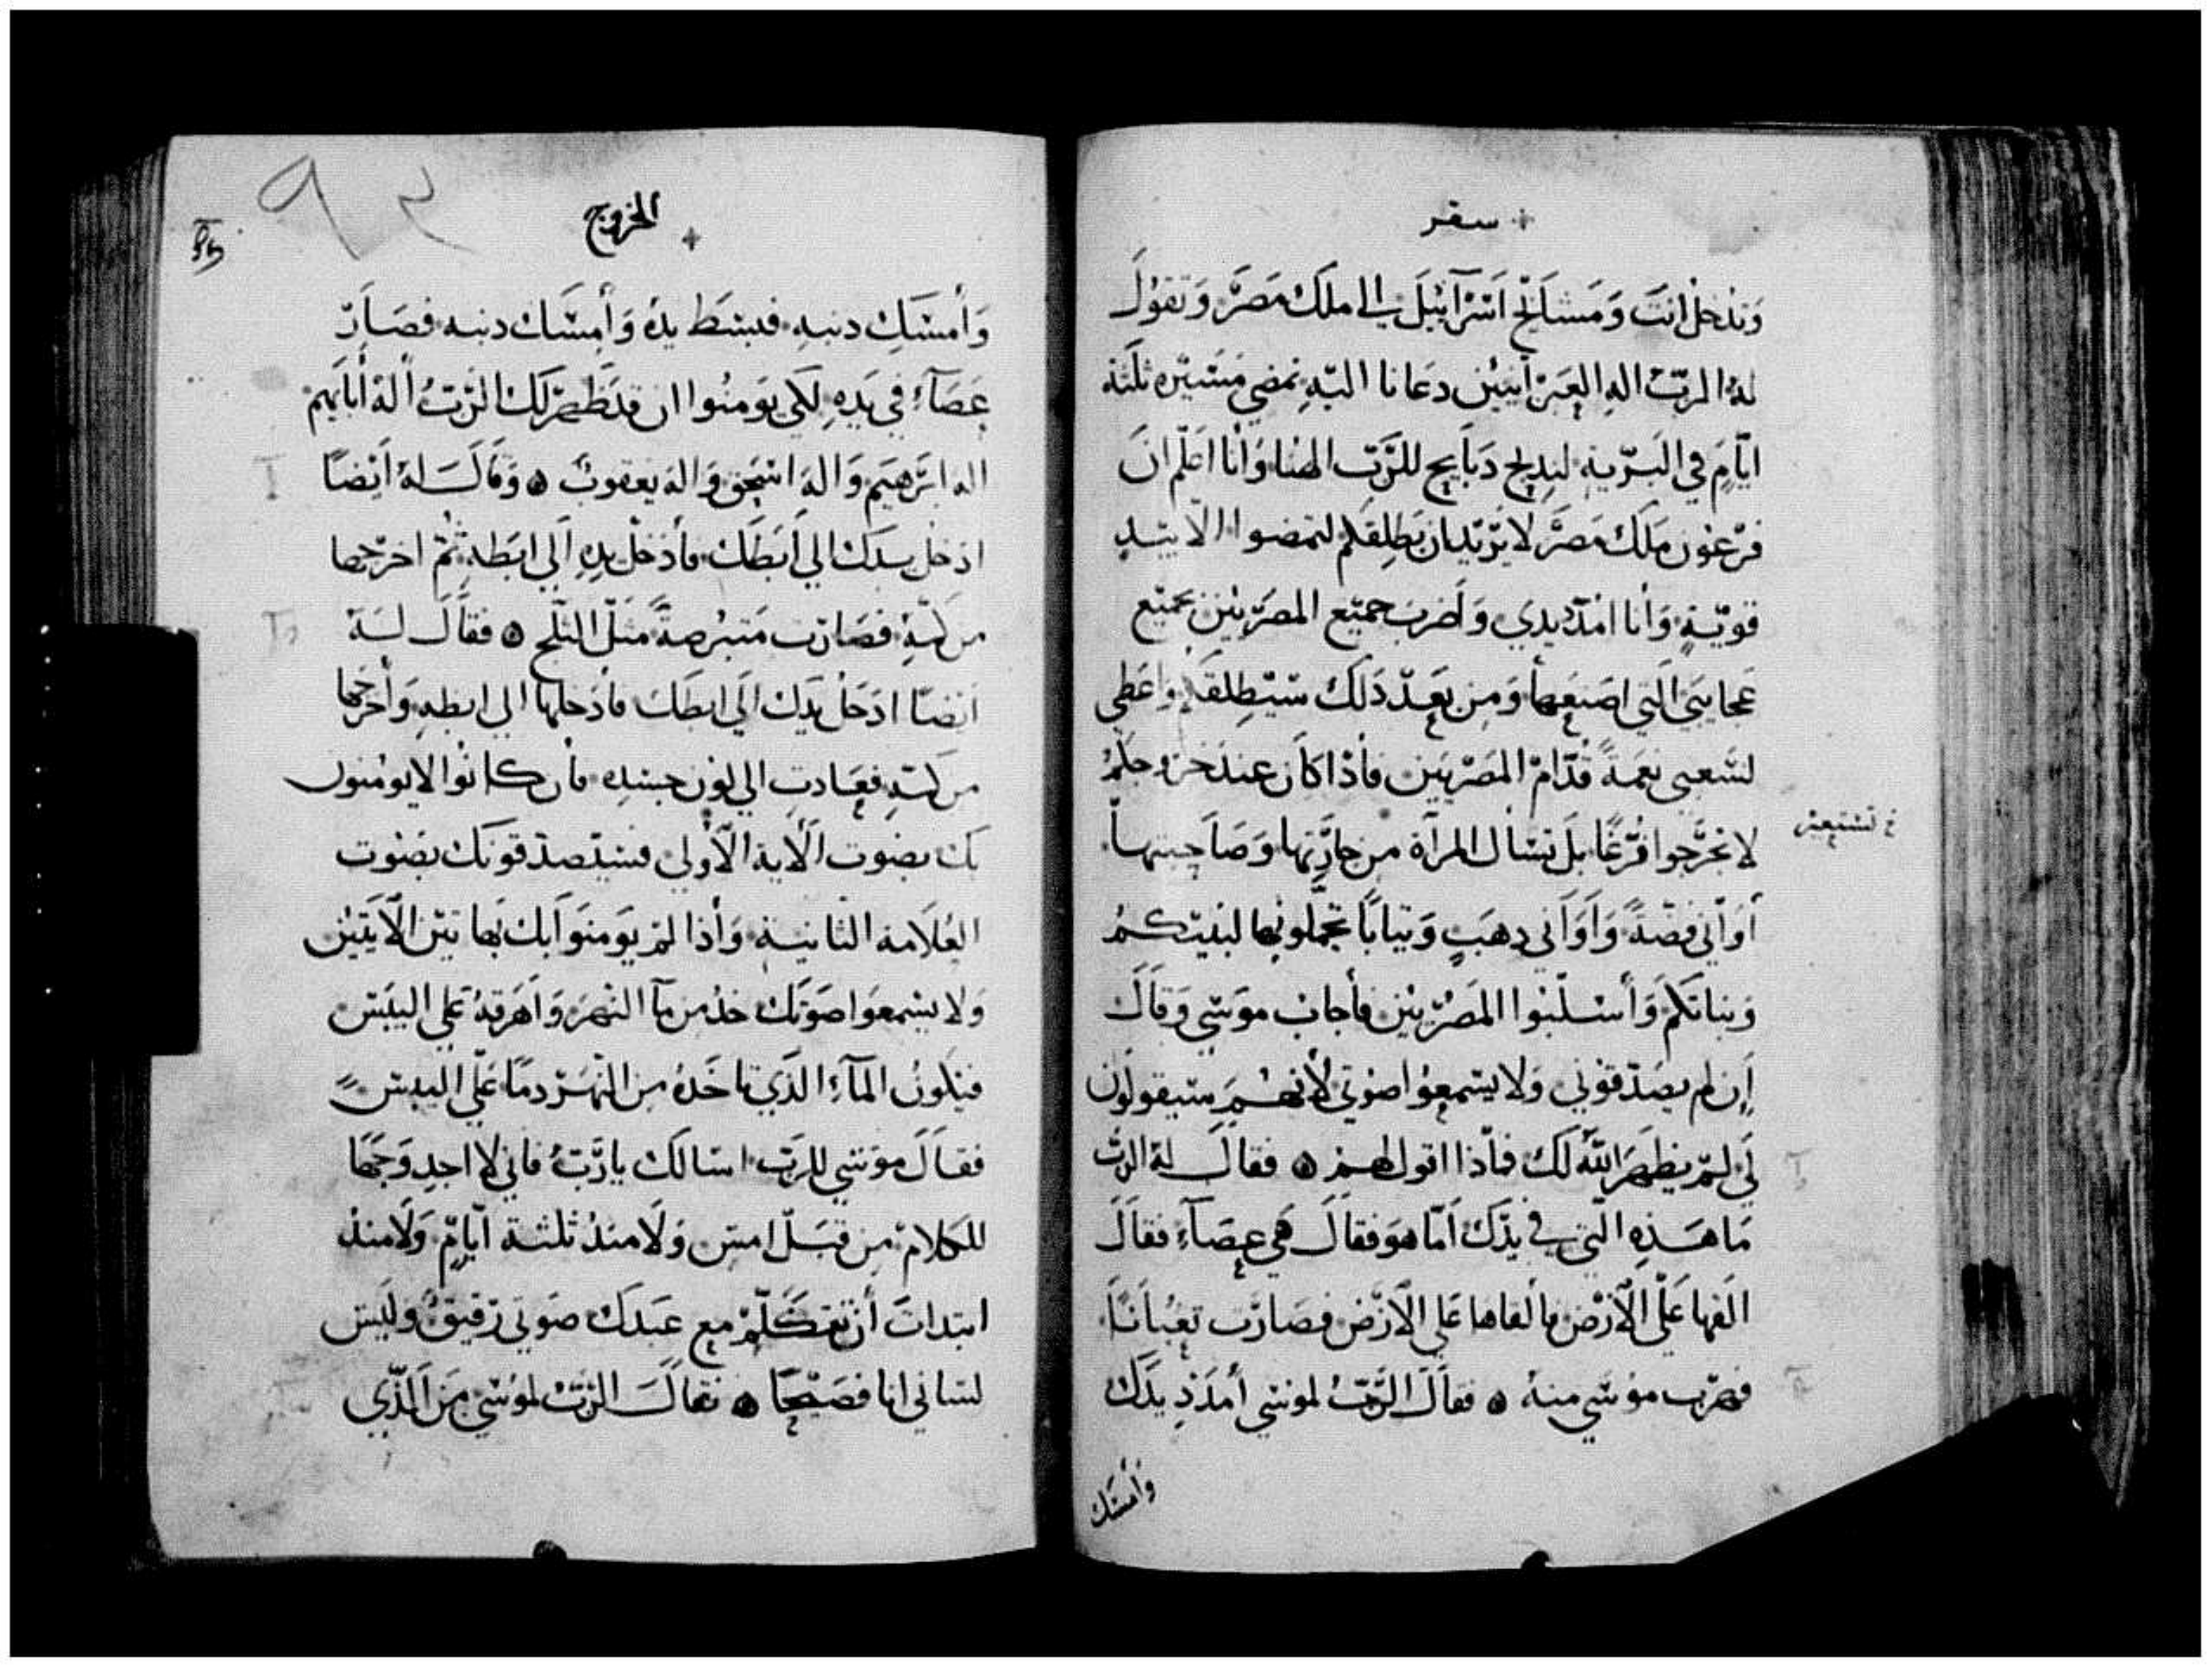 سفر
وتدخل انت ومشايخ اسرآييل الى ملك مصر وتقول
له الرب اله العبرانيين دعانا اليه نمضي مسيره ثلثة
ايام في البرية لندبح دبايح للرب الهنا وانا اعلم ان
فرعون ملك مصر لا يريد ان يطلقكم لتمضوا الا بيد
قوية وانا امد يدي واضرب جميع المصريين بجميع
عجايبي التي اصنعها ومن بعد دلك سيطلقكم واعطي
لشعبي نعمة قدام المصريين فأذا كان عند خروجكم
لا تخرجوا فرغا بل تسال المرآة من جارتها وصاحبتها
خ تستعير
أواني فضة وأواني دهب وتيابا تجملون بها لبنيكم
وبناتكم وأسلبوا المصريين فأجاب موسي وقال
إن لم يصدقوني ولا يسمعوا صوتي لأنهم سيقولون
لي لم يظهر الله لك فأذا اقول لهم ۞ فقال له الرب
ما هذه التي في يدك أما هو فقال هي عصآء فقال
القها على الأرض فألقاها على الأرض فصارت تعبانا
فهرب موسي منه ۞ فقال الرب لموسي أمدد يدك
وأمسك
الخروج
٩٣
وأمسك دنبه فبسط يده وأمسك دنبه فصار
عصآء في يده لكي يومنوا ان قد ظهر لك الرب اله أبايهم
اله ابرهيم واله اسحق واله يعقوب ۞ وقال له ايضا
ادخل يدك الي أبطك فأدخل يده الي ابطه ثم اخرجها
من كمه فصارت متبرصة مثل الثلج ۞ فقال له
ايضا ادخل يدك الي ابطك فأدخلها الي ابطه وأخرجها
من كمه فعادت الي لون جسده فأن كانوا لا يومنون
بك بصوت الأية الأولي فسيصدقونك بصوت
العلامة الثانية وأذا لم يومنوا بك بهاتين الأيتين
ولا يسمعوا صوتك خد من مآ النهر واهرقه علي اليبس
فيكون المآء الذي تاخده من النهر دما علي اليبس
فقال موسي للرب اسالك يا رب فاني لا اجد وجها
للكلام من قبل امس ولا منذ ثلثة ايام ولا منذ
ابتدات أن تتكلم مع عبدك صوتي رقيق وليس
لساني انا فصيحا ۞ فقال الرب لموسي من الذي